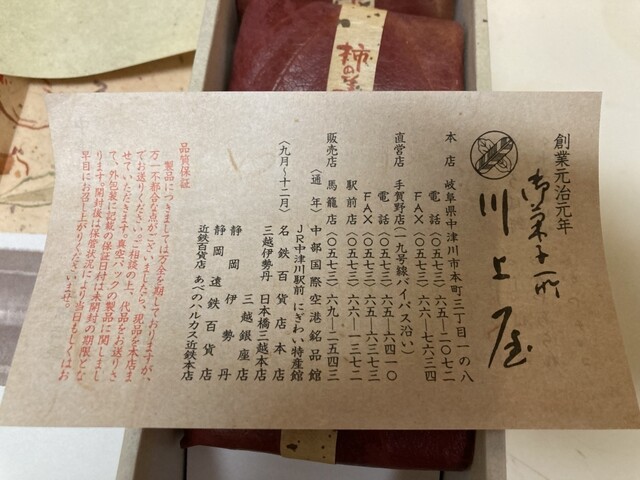 柿の美
創業元治元年
御菓子所
川上屋
本店 岐阜県中津川市本町三丁目一の八
電話(〇五七三)六五―二〇七二
FAX(〇五七三)六六―七六三四
直営店 手賀野店(一九号線バイパス沿い)
電話(〇五七三)六五―六四一〇
FAX(〇五七三)六五―六三七三
駅前店(〇五七三)六六―一三七二
販売店 馬籠店(〇五七三)六九―二五四三
〈通年〉 中部国際空港銘品館
JR中津川駅前 にぎわい特産館
〈九月~十二月〉 名鉄百貨店本店
三越伊勢丹 日本橋三越本店
三越銀座店
静岡伊勢丹
静岡遠鉄百貨店
近鉄百貨店 あべのハルカス近鉄本店
品質保証
製品につきましては万全を期しておりますが、
万一不都合な点がございましたら、現品を本店ま
でお送りください。ご相談の上、代品をお送りさ
せていただきます。真空パックの製品に関しまし
て、外包装に記載の保証日付は未開封の期限とな
ります。開封後は保管状況により当日もしくはお
早目にお召し上がりくださいませ。